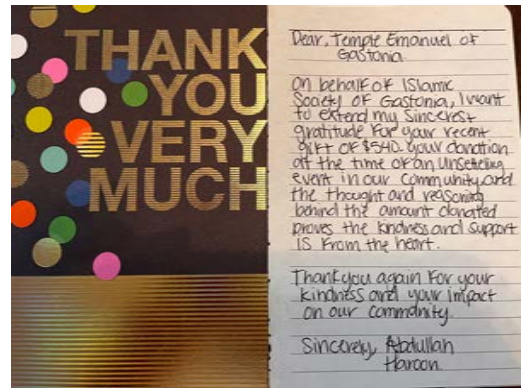 THANK
YOU
VERY
MUCH
Dear, Temple Emanuel of
Gastonia
On behalf of Islamic
Society of Gastonia, I want
to extend my sincerest
gratitude for your recent
gift of $540. your donation
at the time of an unsettling
event in our community, and
the thought and reasoning
behind the amount donated
proves the kindness and support
is from the heart.
Thank you again for your
kindness and your impact
on our community.
Sincerely, Abdullah
Haroon